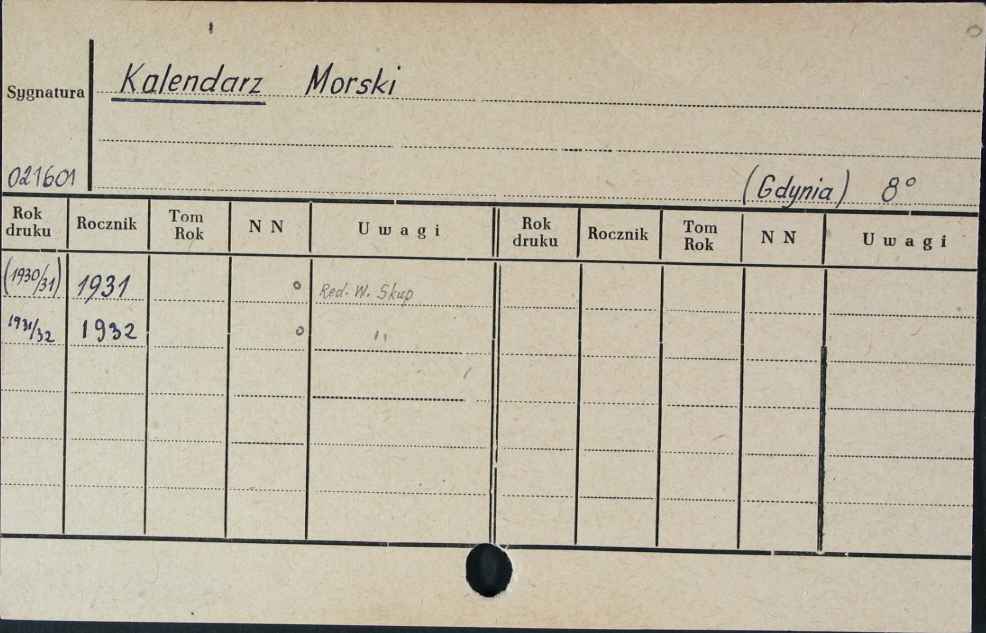 Kalendarz Morski
Sygnatura
021601
(Gdynia) 8°
Rok druku Rocznik Tom Rok N N Uwagi Rok druku Rocznik Tom Rok N N Uwagi
(1930/31) 1931 ° Red. W. Skup
1931/32 1932 ° "